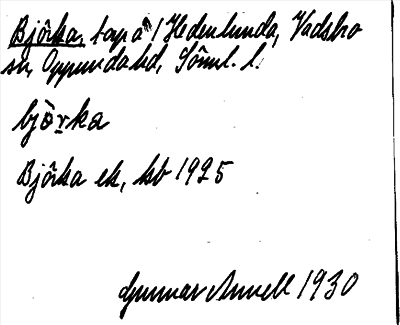 Björka, torp å Hedenlunda, Vadsbro
sn, Oppunda hd, Söml. l.
björka
Björka ek, kb 1925
Gunnar Annell 1930